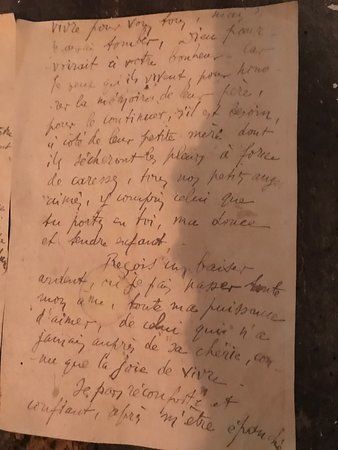 vivre pour vous tous, mais
tomber, Dieu pour-
voirait à votre bonheur. Car
je veux qu'ils vivent, pour hono-
rer la mémoire de leur père,
pour le continuer, s'il est besoin,
à côté de leur petite mère dont
ils sécheront les pleurs à force
de caresses, tous nos petits ang
aimés, y compris celui que
tu portes en toi, ma douce
et tendre enfant.
Reçois un baiser
ardent, où je fais passer toute
mon âme, toute ma puissance
d'aimer, de celui qui n'a
jamais auprès de sa chérie, con-
nu que la joie de vivre.
Je pars réconforté et
confiant, après m'être épanché